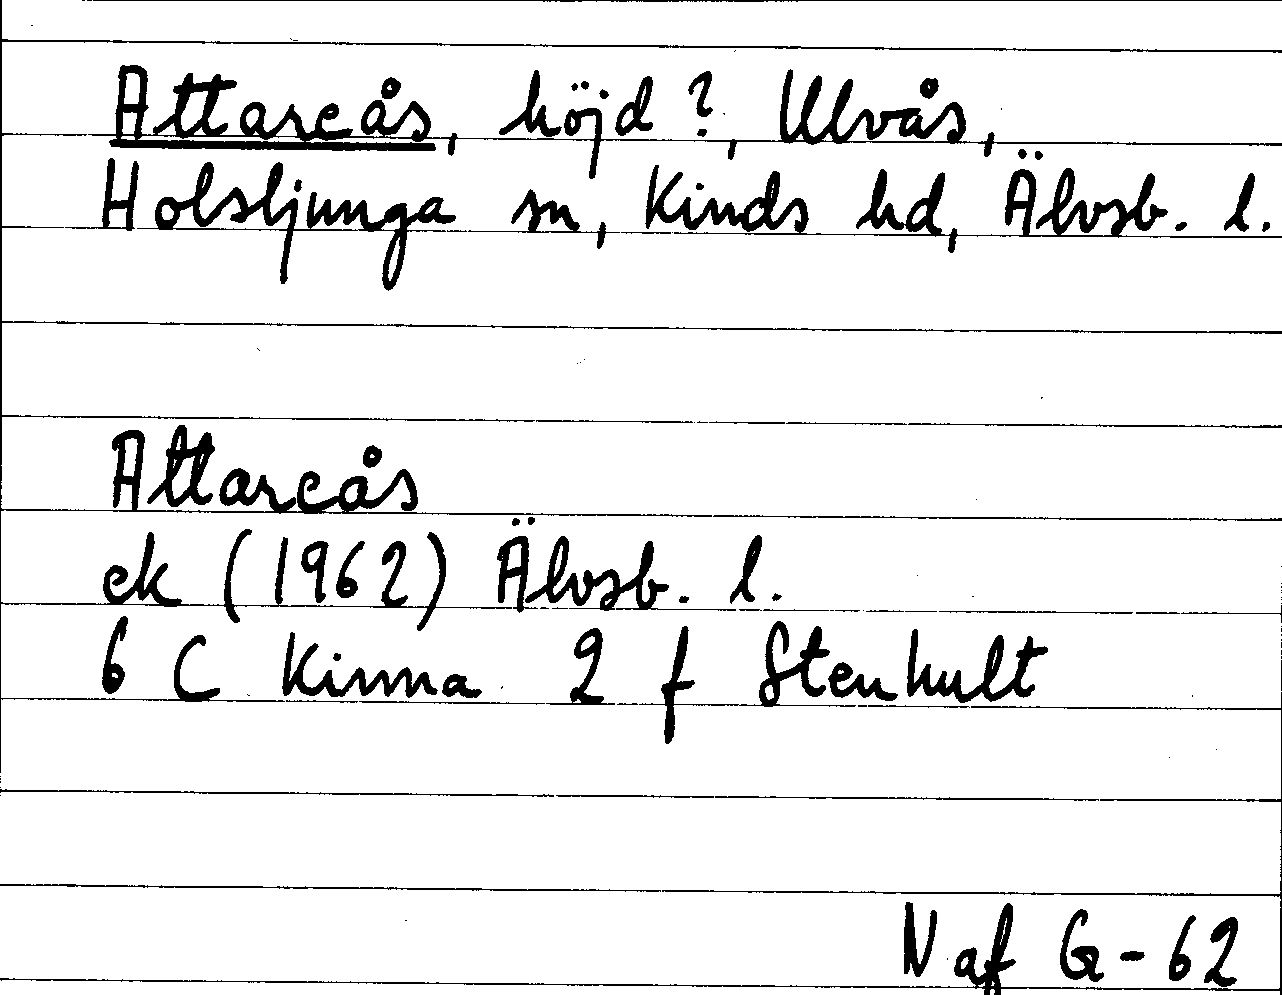 Attareås, höjd ?, Ulvås,
Holsljunga sn, Kinds hd, Älvsb. l.
Attareås
ek (1962) Älvsb. l.
6 C Kinna 2 f Stenhult
N af G-62